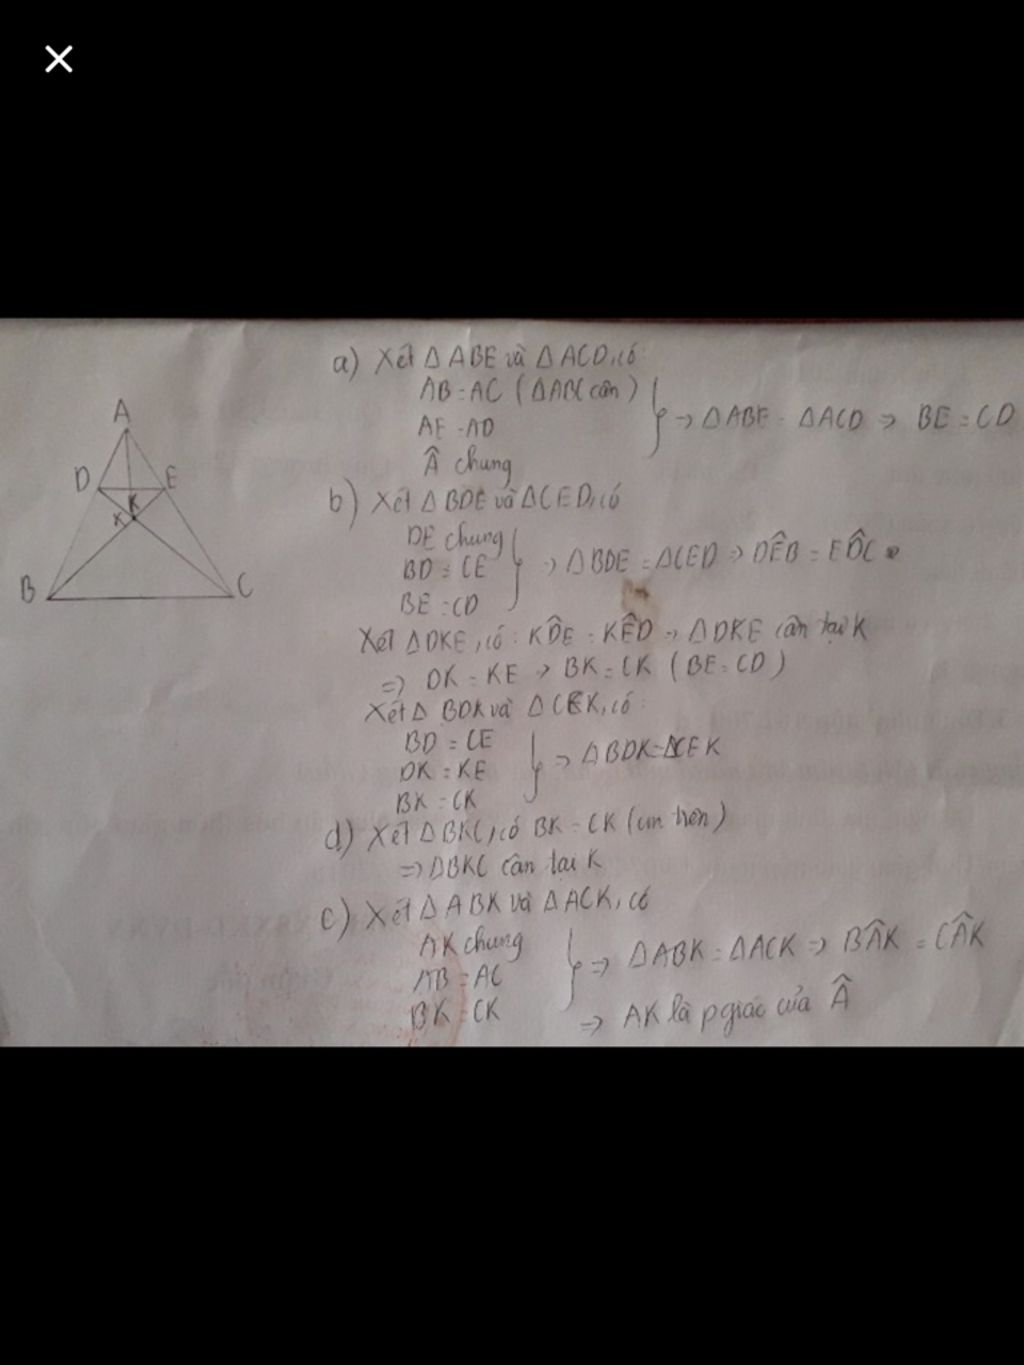 A
D
E
K
K
B
C
a) Xét Δ ABE và Δ ACD, có:
AB = AC (ΔABC cân)
AE = AD
Â chung
⇒ Δ ABE = ΔACD ⇒ BE = CD
b) Xét Δ BDE và ΔCED, có
DE chung
BD = CE
BE = CD
⇒ Δ BDE = ΔCED ⇒ DÊB = ED̂C
Xét ΔDKE, có: KD̂E = KÊD ⇒ ΔDKE cân tại K
⇒ DK = KE ⇒ BK = CK (BE = CD)
Xét Δ BDK và ΔCEK, có:
BD = CE
DK = KE
BK = CK
⇒ ΔBDK = ΔCEK
d) Xét ΔBKC, có BK = CK (cm trên)
⇒ ΔBKC cân tại K
c) Xét Δ ABK và ΔACK, có
AK chung
AB = AC
BK = CK
⇒ ΔABK = ΔACK ⇒ BÂK = CÂK
⇒ AK là pgiác của Â